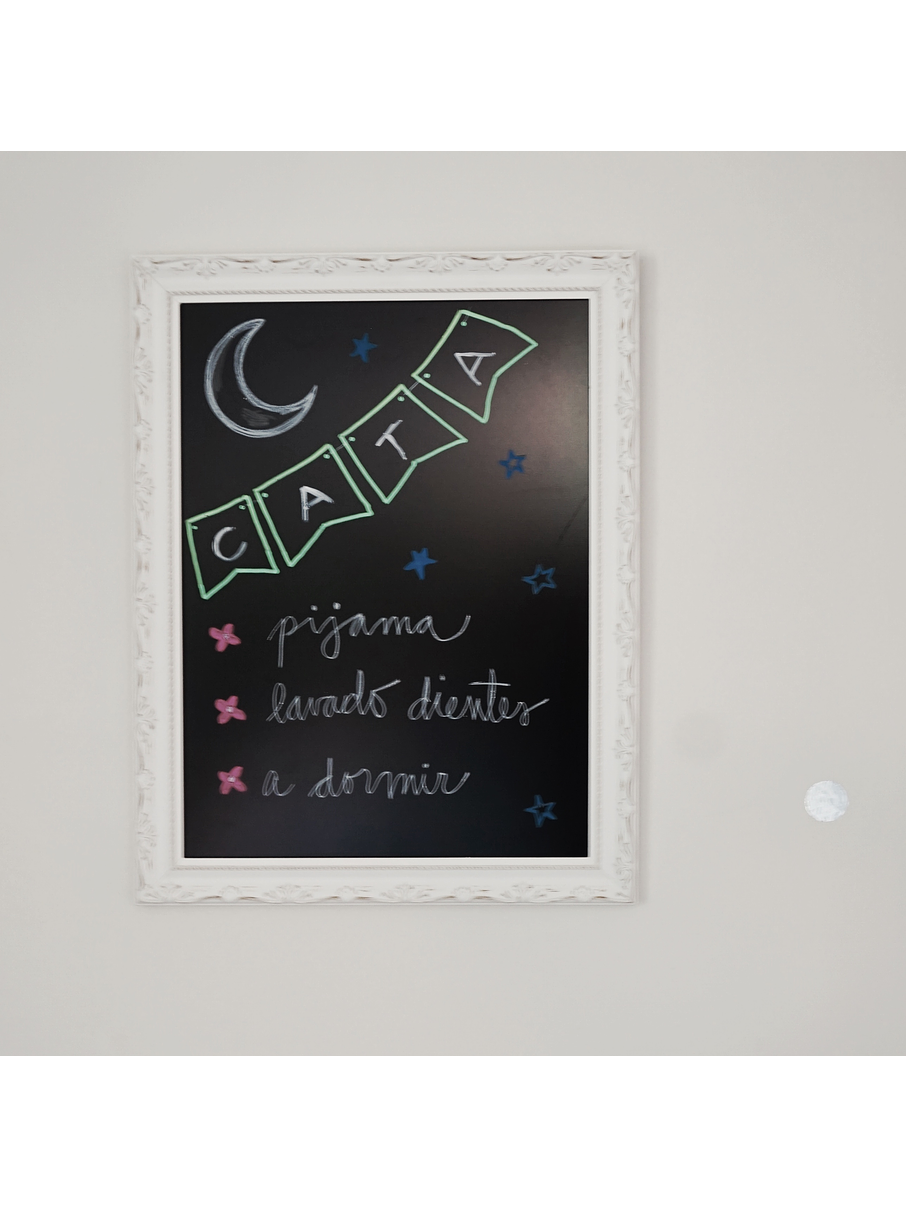 CATA
pijama
lavado dientes
a dormir